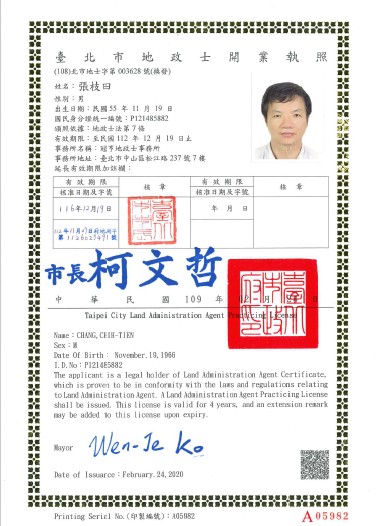 臺北市地政士開業執照
(108)北市地士字第003628號(換發)
姓名：張枝田
性別：男
出生日期：民國55年11月19日
國民身分證統一編號：P121485882
頒照依據：地政士法第7條
有效期限：至民國112年12月19日止
事務所名稱：冠亨地政士事務所
事務所地址：臺北市中山區松江路237號7樓
延長有效期限加註欄：
有效期限 核章 有效期限 核章
核准日期及字號 核准日期及字號
116年12月19日 年 月 日
市長 柯文哲
中華民國 109年 12月 日
Taipei City Land Administration Agent Practicing License
Name：CHANG, CHIH-TIEN
Sex：M
Date Of Birth： November,19,1966
I.D.No：P121485882
The applicant is a legal holder of Land Administration Agent Certificate,
which is proven to be in conformity with the laws and regulations relating
to Land Administration Agent. A Land Administration Agent Practicing License
shall be issued. This license is valid for 4 years, and an extension remark
may be added to this license upon expiry.
Mayor Wen-Je Ko
Date of Issuance：February.24,2020
Printing Seriel No.(印製編號)：A05982
A05982